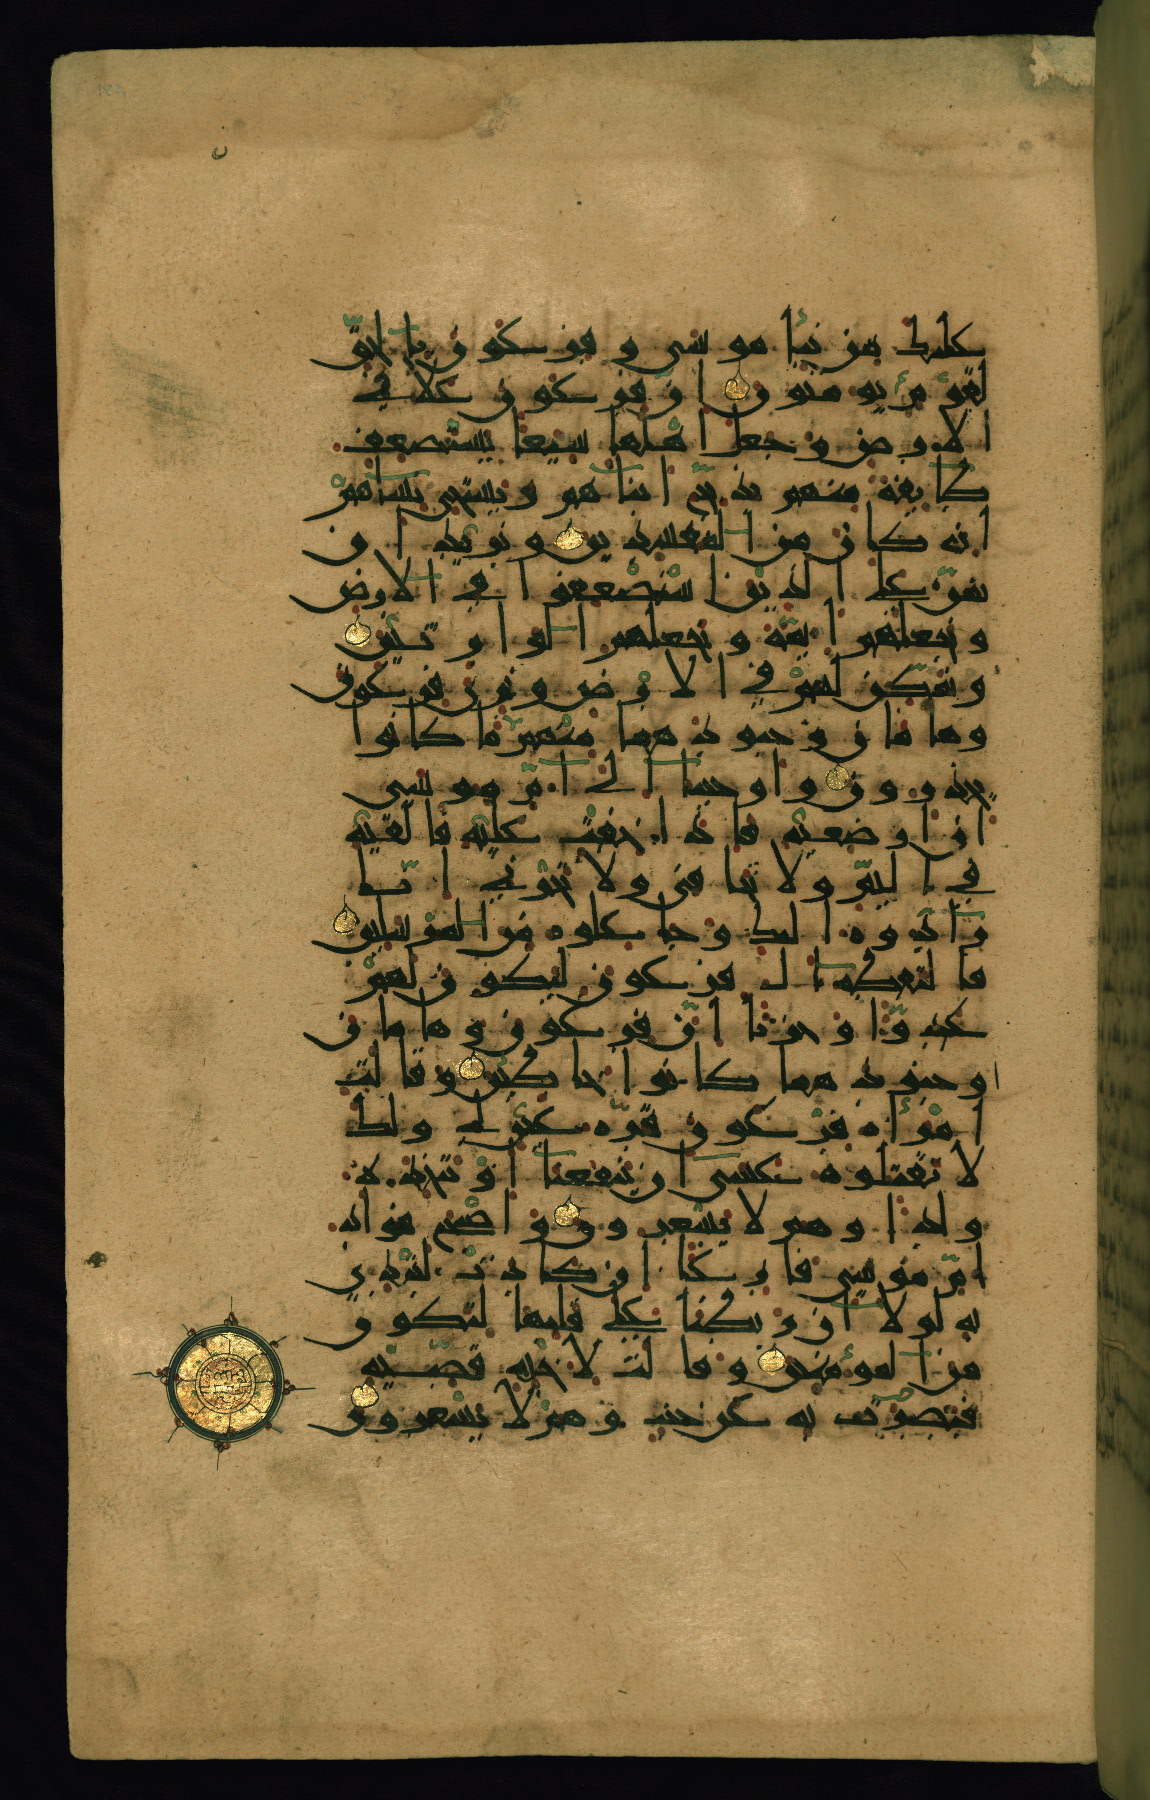 عليك من نبإ موسى وفرعون بالحق
لقوم يؤمنون ان فرعون علا في
الارض وجعل اهلها شيعا يستضعف
طائفة منهم يذبح ابناءهم ويستحيي نساءهم
انه كان من المفسدين ونريد ان
نمن على الذين استضعفوا في الارض
ونجعلهم ائمة ونجعلهم الوارثين
ونمكن لهم في الارض ونري فرعون
وهامان وجنودهما منهم ما كانوا
يحذرون واوحينا الى ام موسى
ان ارضعيه فاذا خفت عليه فالقيه
في اليم ولا تخافي ولا تحزني انا
رادوه اليك وجاعلوه من المرسلين
فالتقطه ال فرعون ليكون لهم
عدوا وحزنا ان فرعون وهامان
وجنودهما كانوا خاطئين وقالت
امرأة فرعون قرة عين لي ولك
لا تقتلوه عسى ان ينفعنا او نتخذه
ولدا وهم لا يشعرون واصبح فؤاد
ام موسى فارغا ان كادت لتبدي
به لولا ان ربطنا على قلبها لتكون
من المؤمنين وقالت لاخته قصيه
فبصرت به عن جنب وهم لا يشعرون